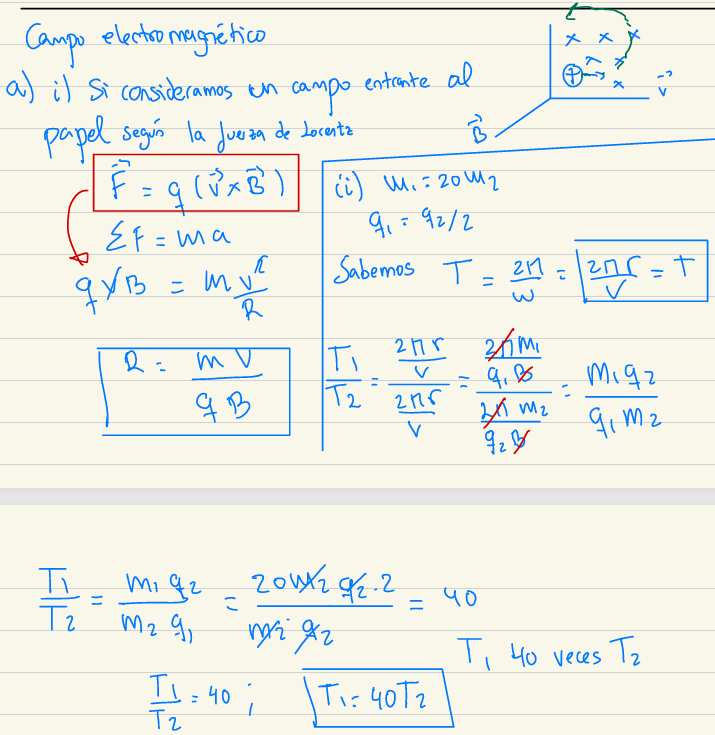 Campo electromagnético
a) i) Si consideramos un campo entrante al
papel según la fuerza de Lorentz
x x x
x x
⊕ x
v⃗
B⃗
F⃗ = q (v⃗ x B⃗)
ΣF = ma
qvB = m v²/R
R = mv/qB
(ii) m₁ = 20m₂
q₁ = q₂/2
Sabemos T = 2π/w = 2πr/v = T
T₁/T₂ = (2πr/v)/(2πr/v) = (2πm₁/q₁B)/(2πm₂/q₂B) = m₁q₂/q₁m₂
T₁/T₂ = m₁q₂/m₂q₁ = 20m₂q₂.2/m₂q₂ = 40
T₁ 40 veces T₂
T₁/T₂ = 40 ; T₁ = 40T₂